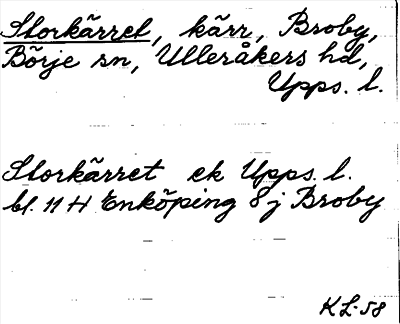 Storkärret, kärr, Broby,
Börje sn, Ulleråkers hd,
Upps. l.
Storkärret ek Upps. l.
bl. 11 H Enköping 8j Broby
KL-58